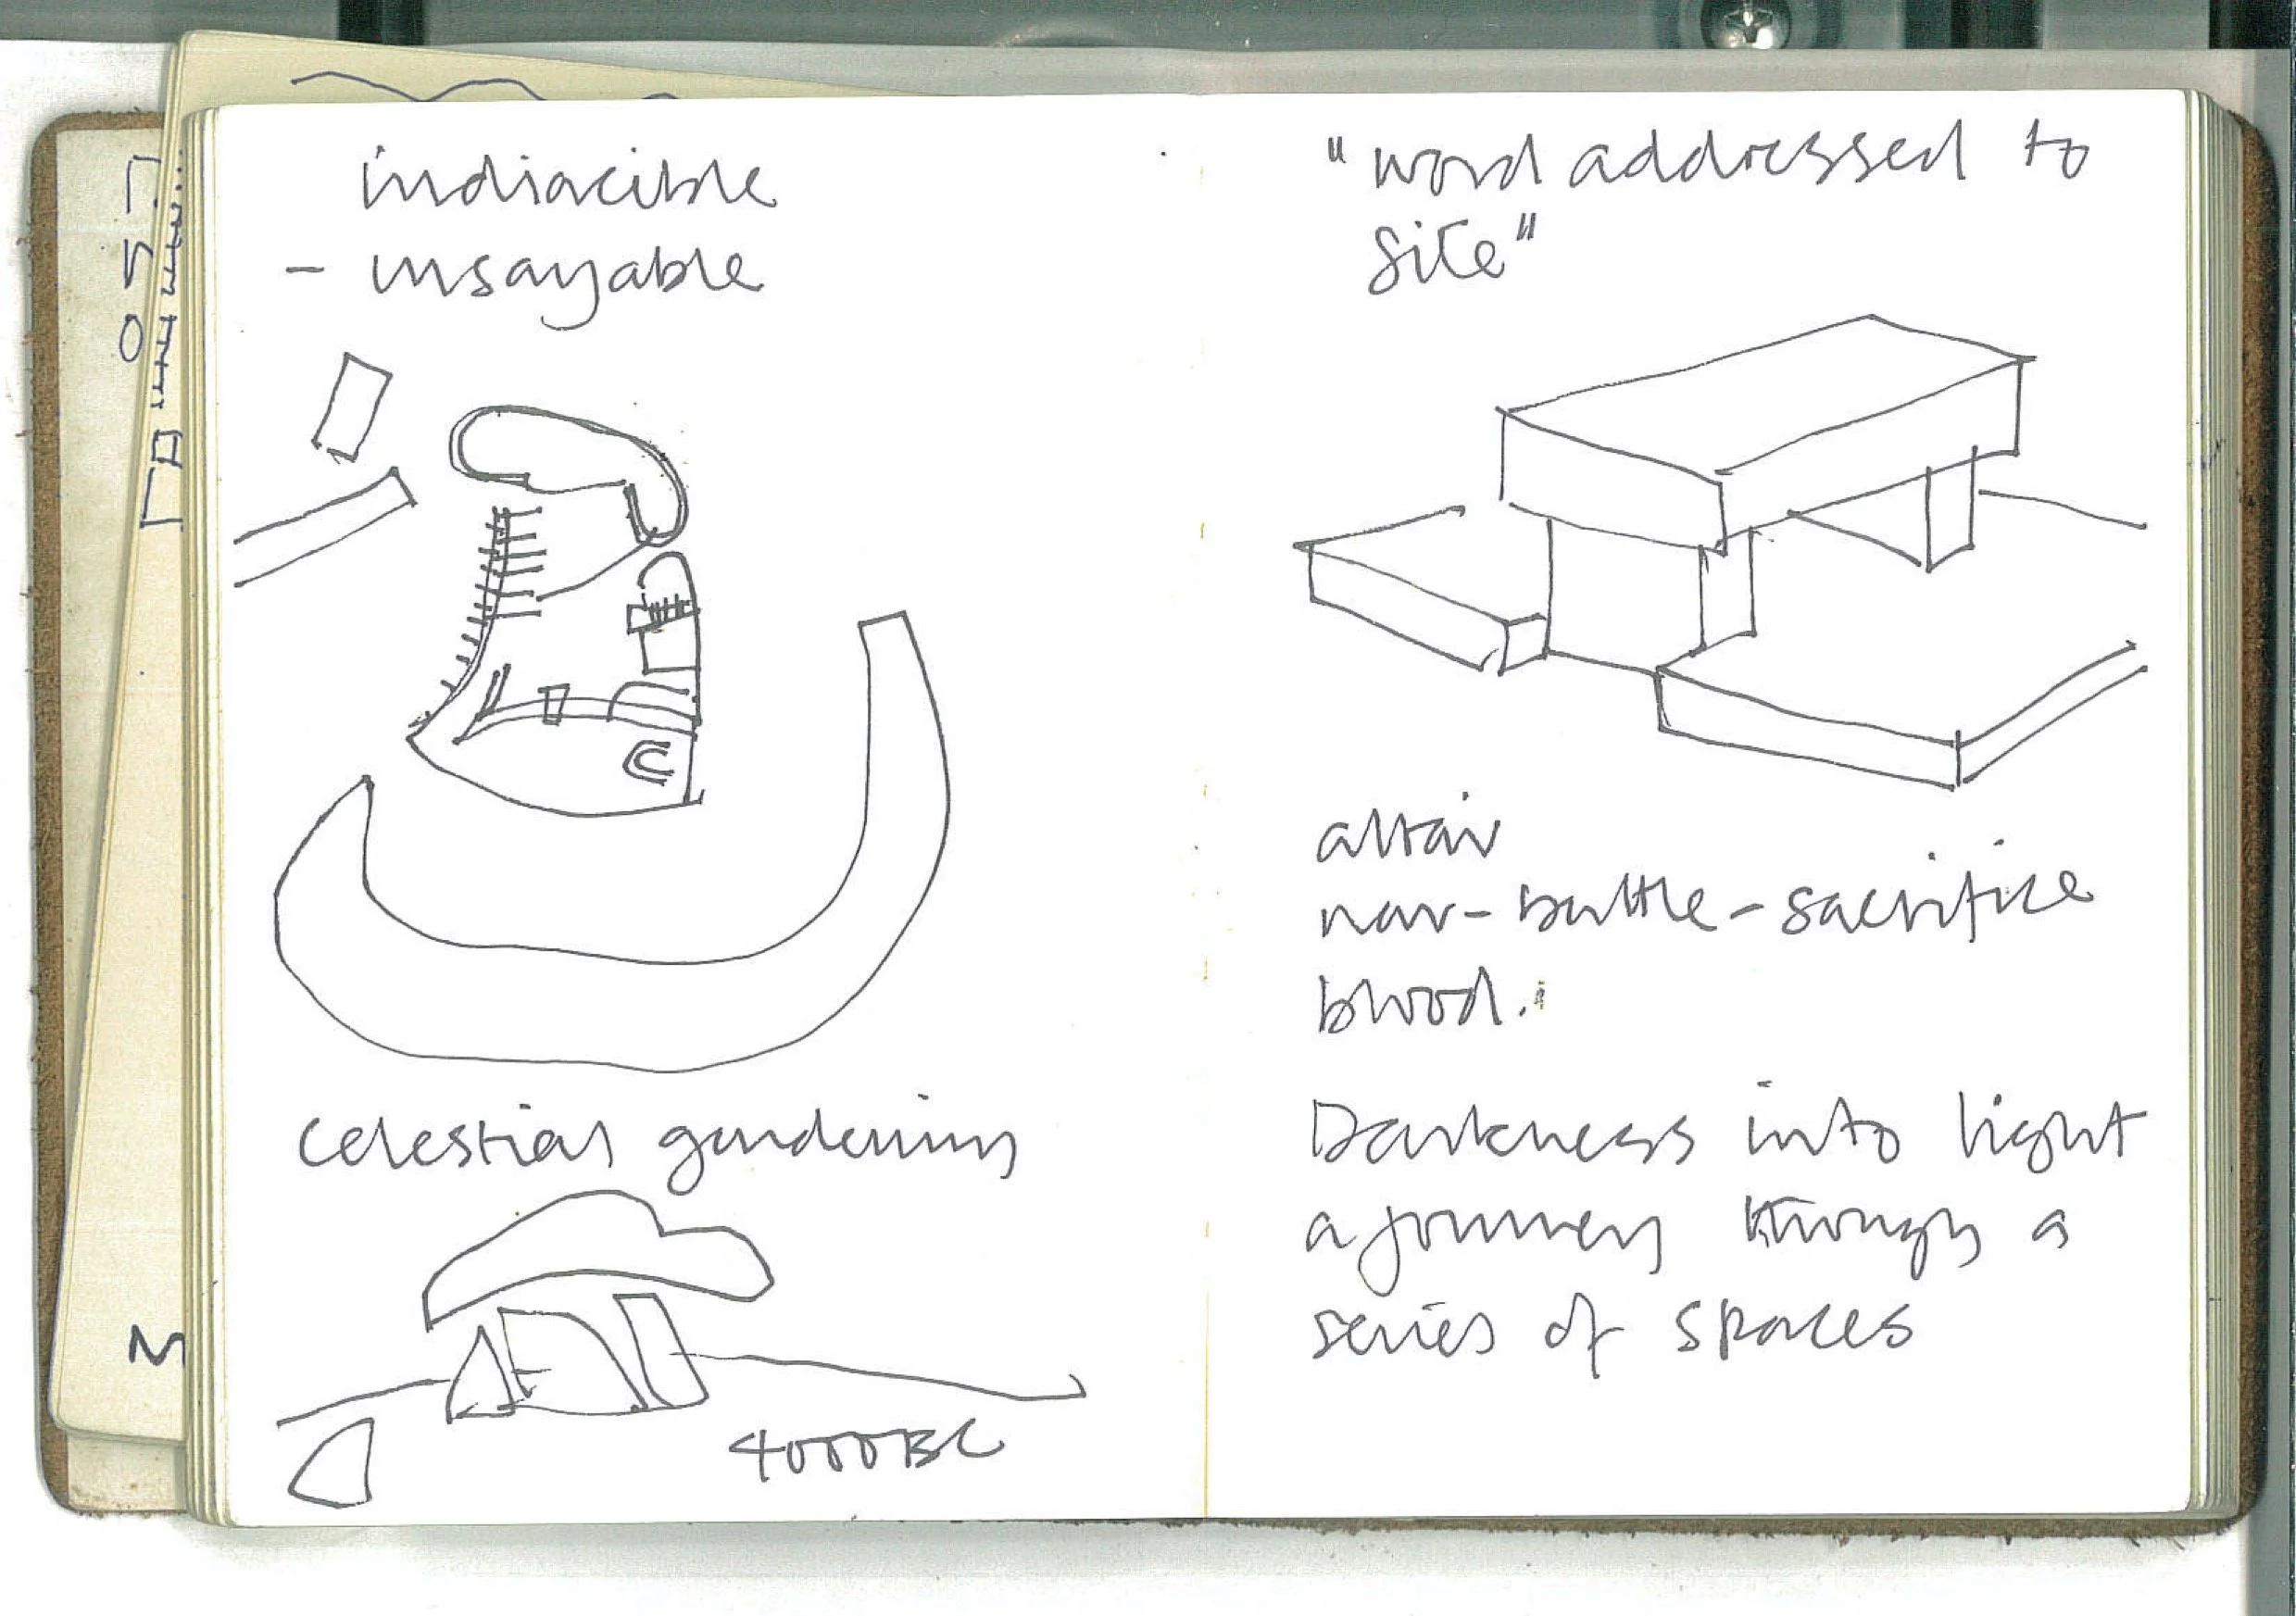 indiacible
- unsayable
celestial gardening
4000BC
"word addressed to
site"
altar
war-battle-sacrifice
blood.
Darkness into light
a journey through a
series of spaces